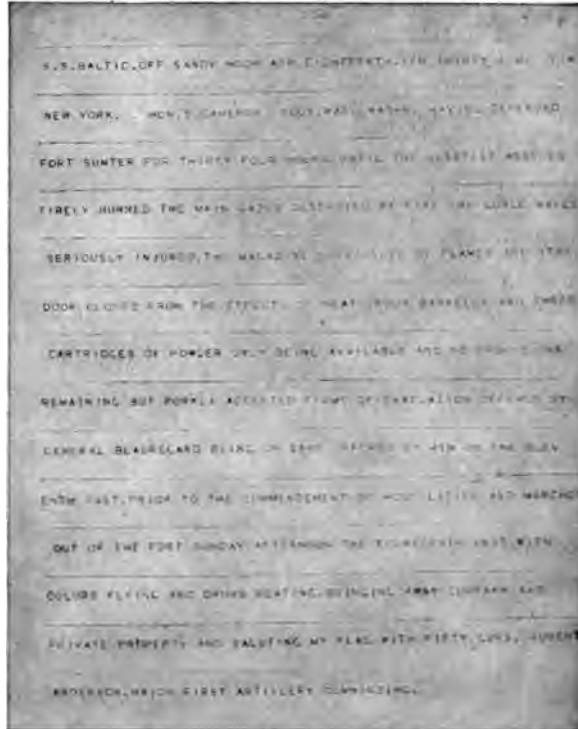 S.S.BALTIC.OFF SANDY HOOK APR.EIGHTEENTH.TEN THIRTY A.M.
NEW YORK. HON.S.CAMERON. SECY.WAR. WASHN. HAVING DEFENDED
FORT SUMTER FOR THIRTY FOUR HOURS UNTIL THE QUARTERS WERE EN
TIRELY BURNED THE MAIN GATES DESTROYED BY FIRE THE GORGE WALLS
SERIOUSLY INJURED.THE MAGAZINE SURROUNDED BY FLAMES AND ITS
DOOR CLOSED FROM THE EFFECTS OF HEAT.FOUR BARRELLS AND THREE
CARTRIDGES OF POWDER ONLY BEING AVAILABLE AND NO PROVISIONS
REMAINING BUT PORK.I ACCEPTED TERMS OF EVACUATION OFFERED BY
GENERAL BEAUREGARD BEING SAME OFFERED BY HIM ON THE ELEV
ENTH INST.PRIOR TO THE COMMENCEMENT OF HOSTILITIES AND MARCHED
OUT OF THE FORT SUNDAY AFTERNOON THE FOURTEENTH INST.WITH
COLORS FLYING AND DRUMS BEATING.BRINGING AWAY COMPANY AND
PRIVATE PROPERTY AND SALUTING MY FLAG WITH FIFTY GUNS. ROBERT
ANDERSON.MAJOR FIRST ARTILLERY COMMANDING.